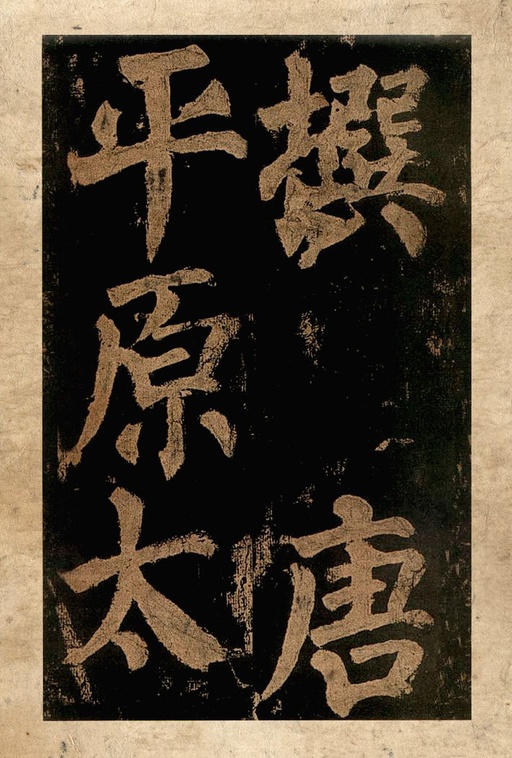 撰唐
平原太